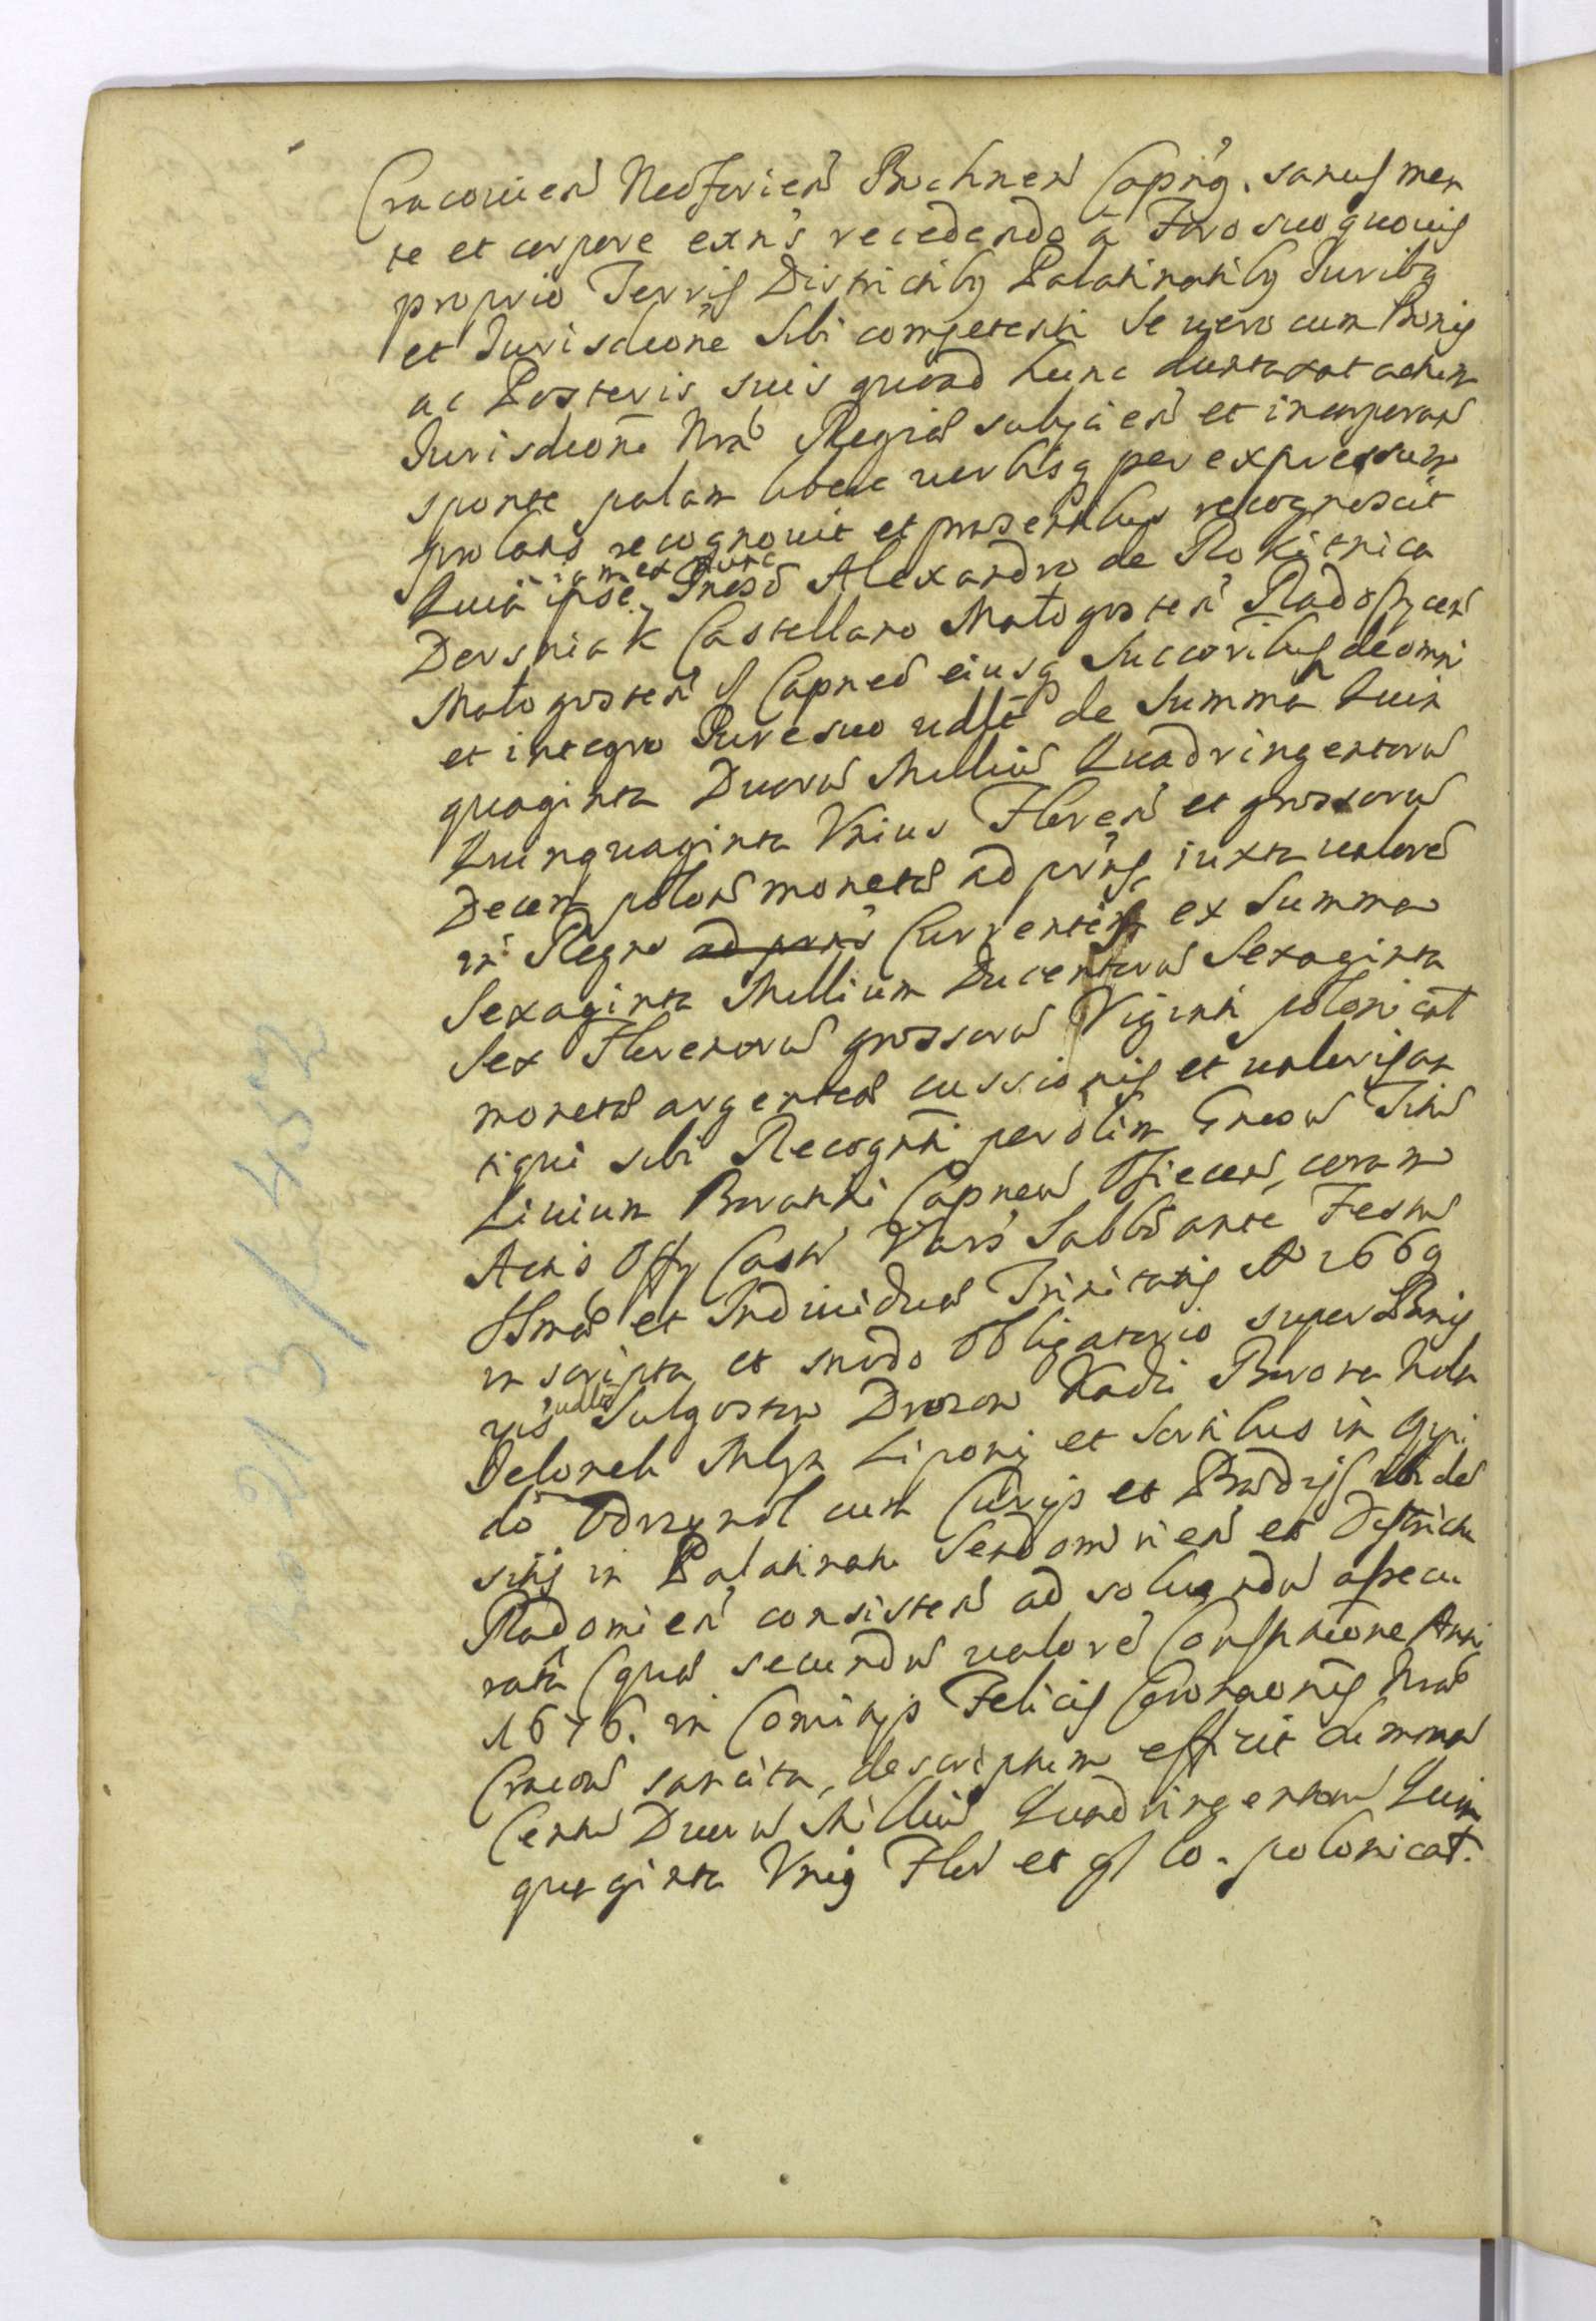 Cracovien Neoforien Bochnen Capng. sanus men
te et corpore exns recedendo a Foro suo quovis
proprio Terris Districtibg Palatinatibg Juribg
et Jurisdcone sibi competenti Se vero cum Bonis
ac Posteris suis quoad hunc duntaxat actum
Jurisdcone Nra Regia subjicien et incorporan
sponte palam libere verbisq per expressum
prolatis recognovit et praesentibus recognoscit
Quia ipse iam ex nunc Gneso Alexandro de Rokitnica
Dersniak Castellano Małogosten Radoszycen
Małogosten Capneo eiusq Succoribus de omni
et integro Jure suo de Summa Quin
quaginta Duorum Millium Quadringentorum
Quinquaginta Unius Floren et grossorum
Decem polon moneta ad prns iuxta valore
in Regno ad prns Currentis ex Summa
Sexaginta Millium Ducentorum Sexaginta
Sex Florenorum grossorum Viginti polonicat
moneta argentea cussionis et valoris an
tiqui sibi Recognti per olim Gneow Titum
Livium Boratini Capneu Osiecen, coram
Actis Offy Castr Vars Sabbo ante Festum
SSma et Individua Trinitatis Ao 1669
inscripta et modo obligatorio super Bonis
Sulgostow Drozow Kadzi Borowa Wola
Mlyn Lipony et Sortibus in Oppi
do Odrzywol cum Curijs et Praedijs ibide
sitis in Palatinatu Sendomirien et Districtu
Radomien consisten ad solvendum assecu
rata (qua secundum valore Constitucione Anni
1676. in Comitijs Felicis Coronaonis Nra
Cracow sancita, descriptum efficit Summa
Centu Duoru Milliu Quadringentoru Quin
quaginta Unig Flor et gl 10. polonicat.